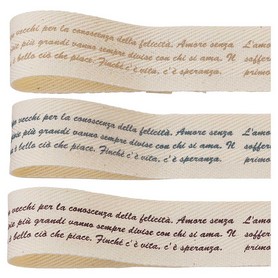 vecchi per la conoscenza della felicità. Amore senza
più grandi vanno sempre divise con chi si ama. Il
è bello ciò che piace. Finchè c'è vita, c'è speranza.
L'amo
soffere
primo
o vecchi per la conoscenza della felicità. Amore senza
pie più grandi vanno sempre divise con chi si ama. Il
è bello ciò che piace. Finchè c'è vita, c'è speranza.
L'amo
soffere
primo
o vecchi per la conoscenza della felicità. Amore senza
pie più grandi vanno sempre divise con chi si ama. Il
è bello ciò che piace. Finchè c'è vita, c'è speranza.
L'amo
soffere
primo